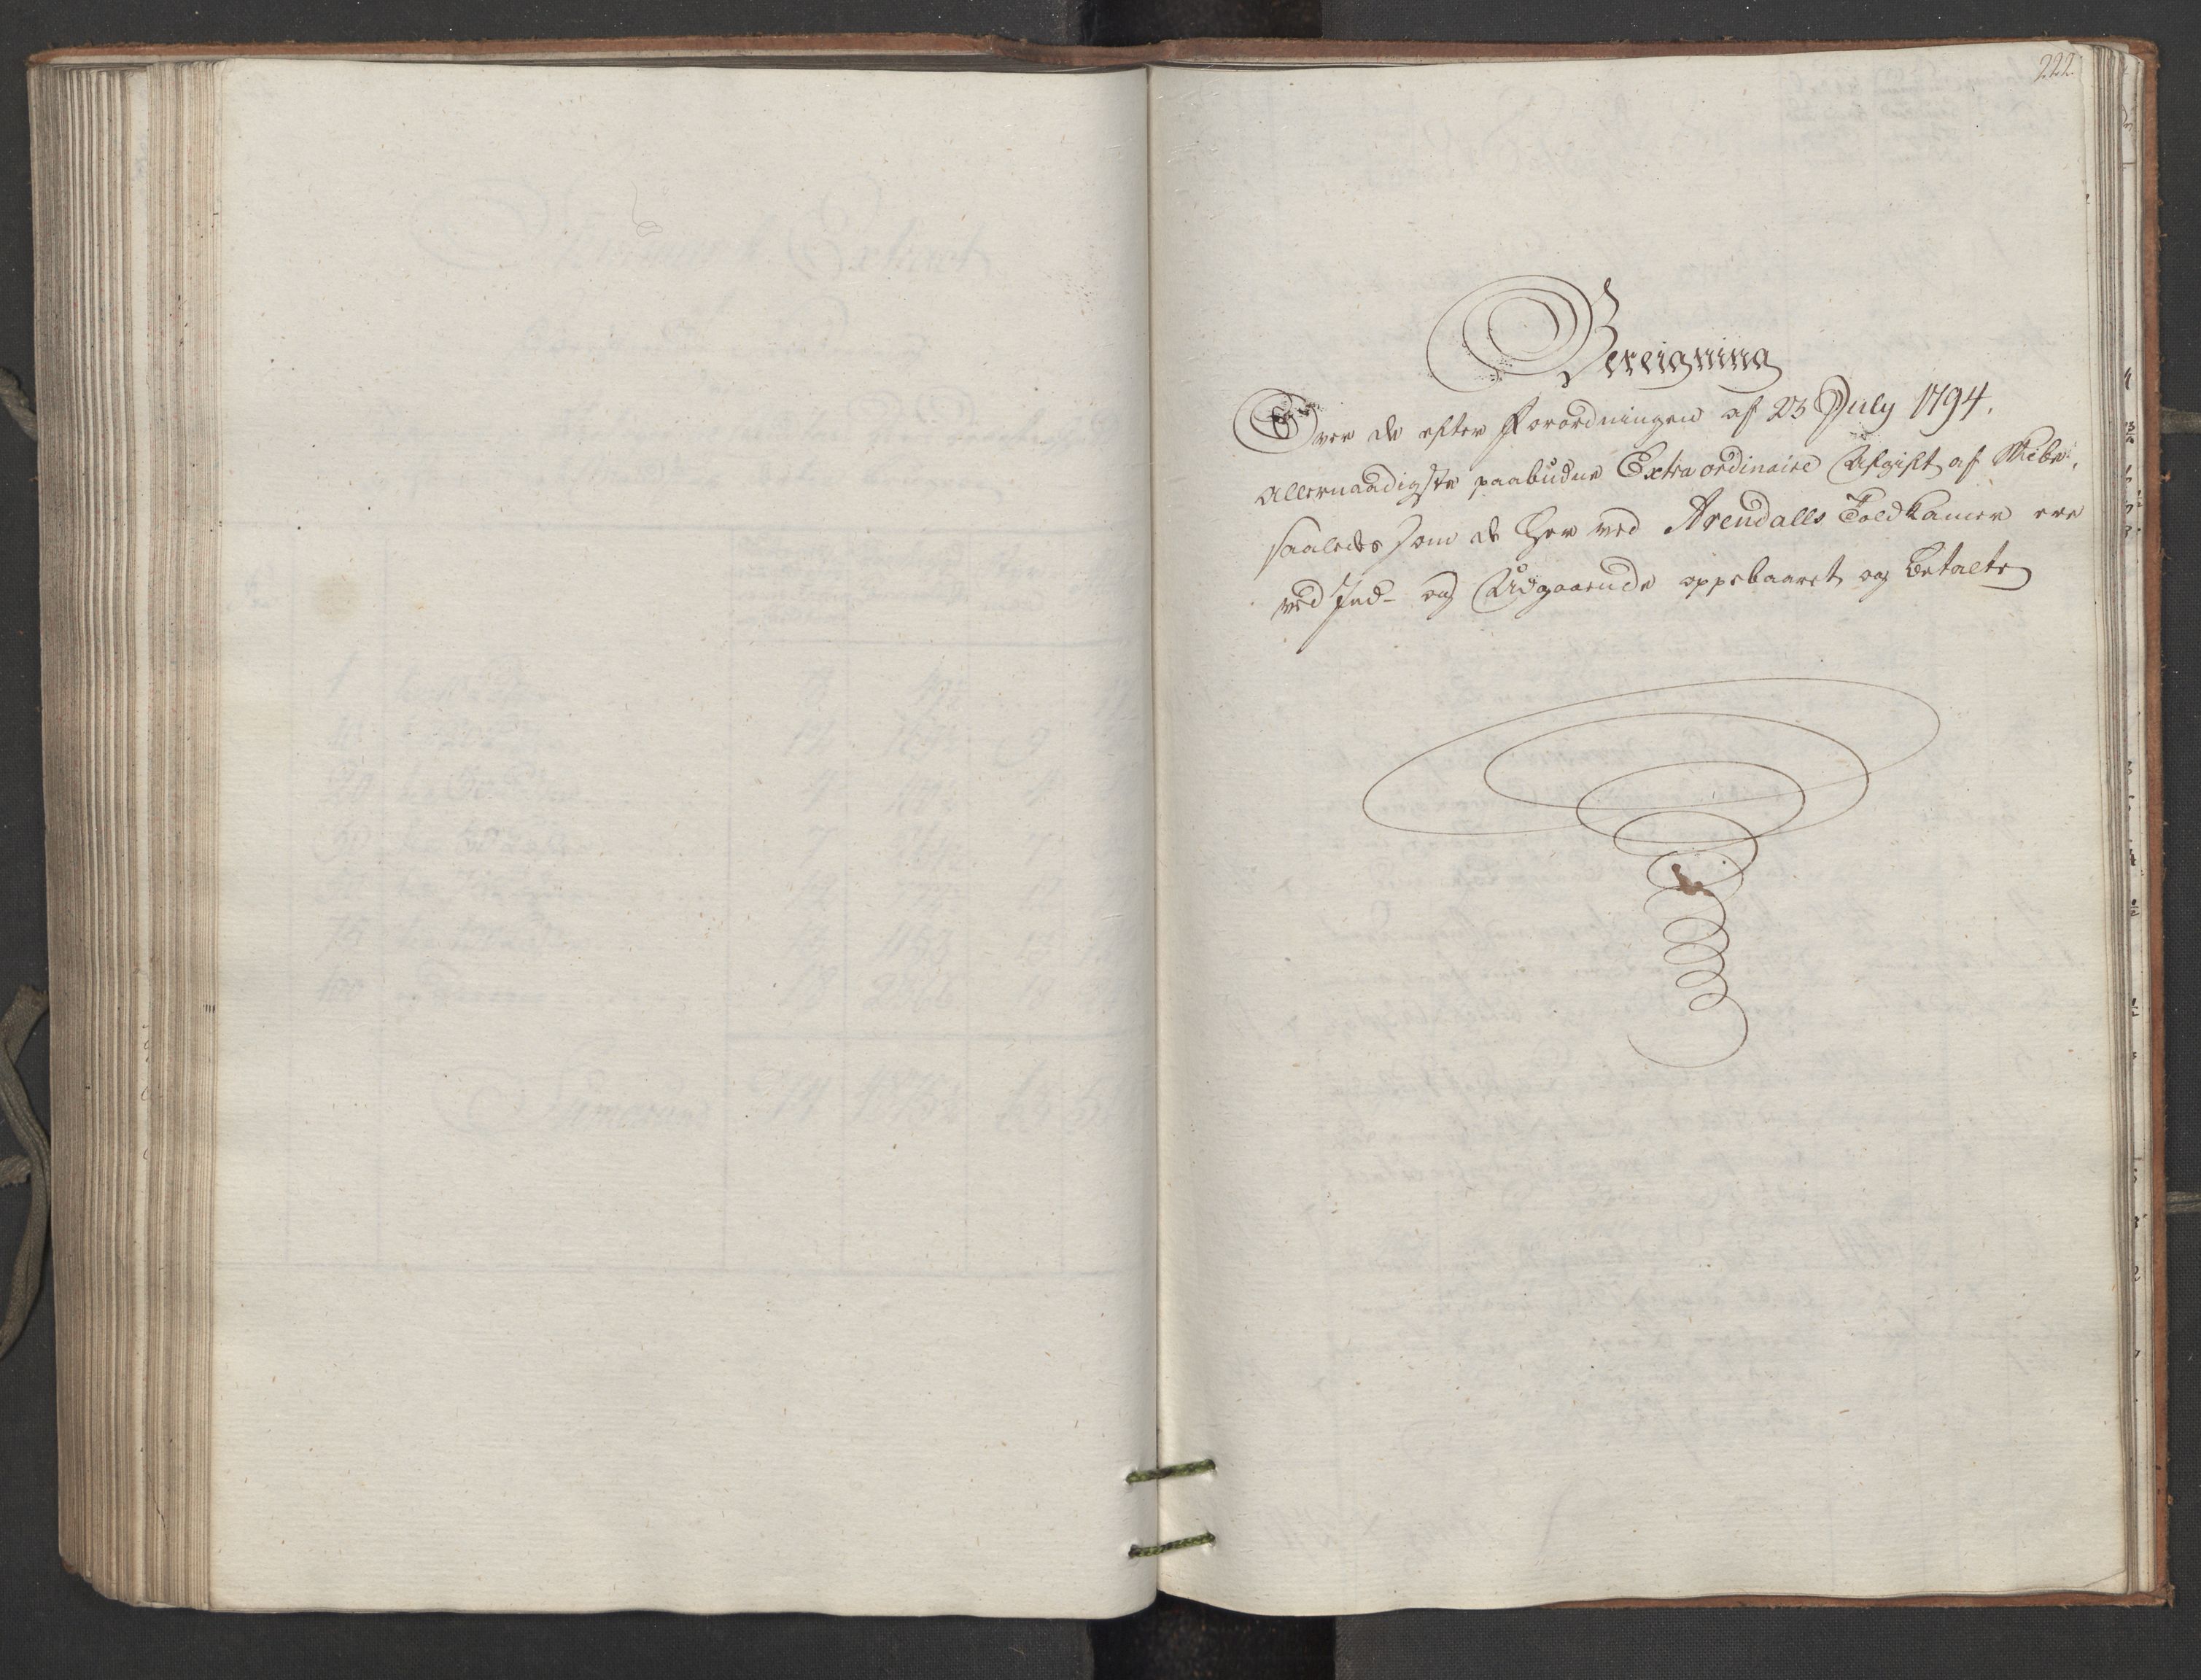 222.
Bereigning
Over de efter Forordningen af 23 July 1794.
allernaadigste paabudne Extra ordinaire Afgift af Skibe,
saaledes som de her ved Arendalls Toldkamer ere
ved Ind- og Udgaaende oppebaaret og betalte